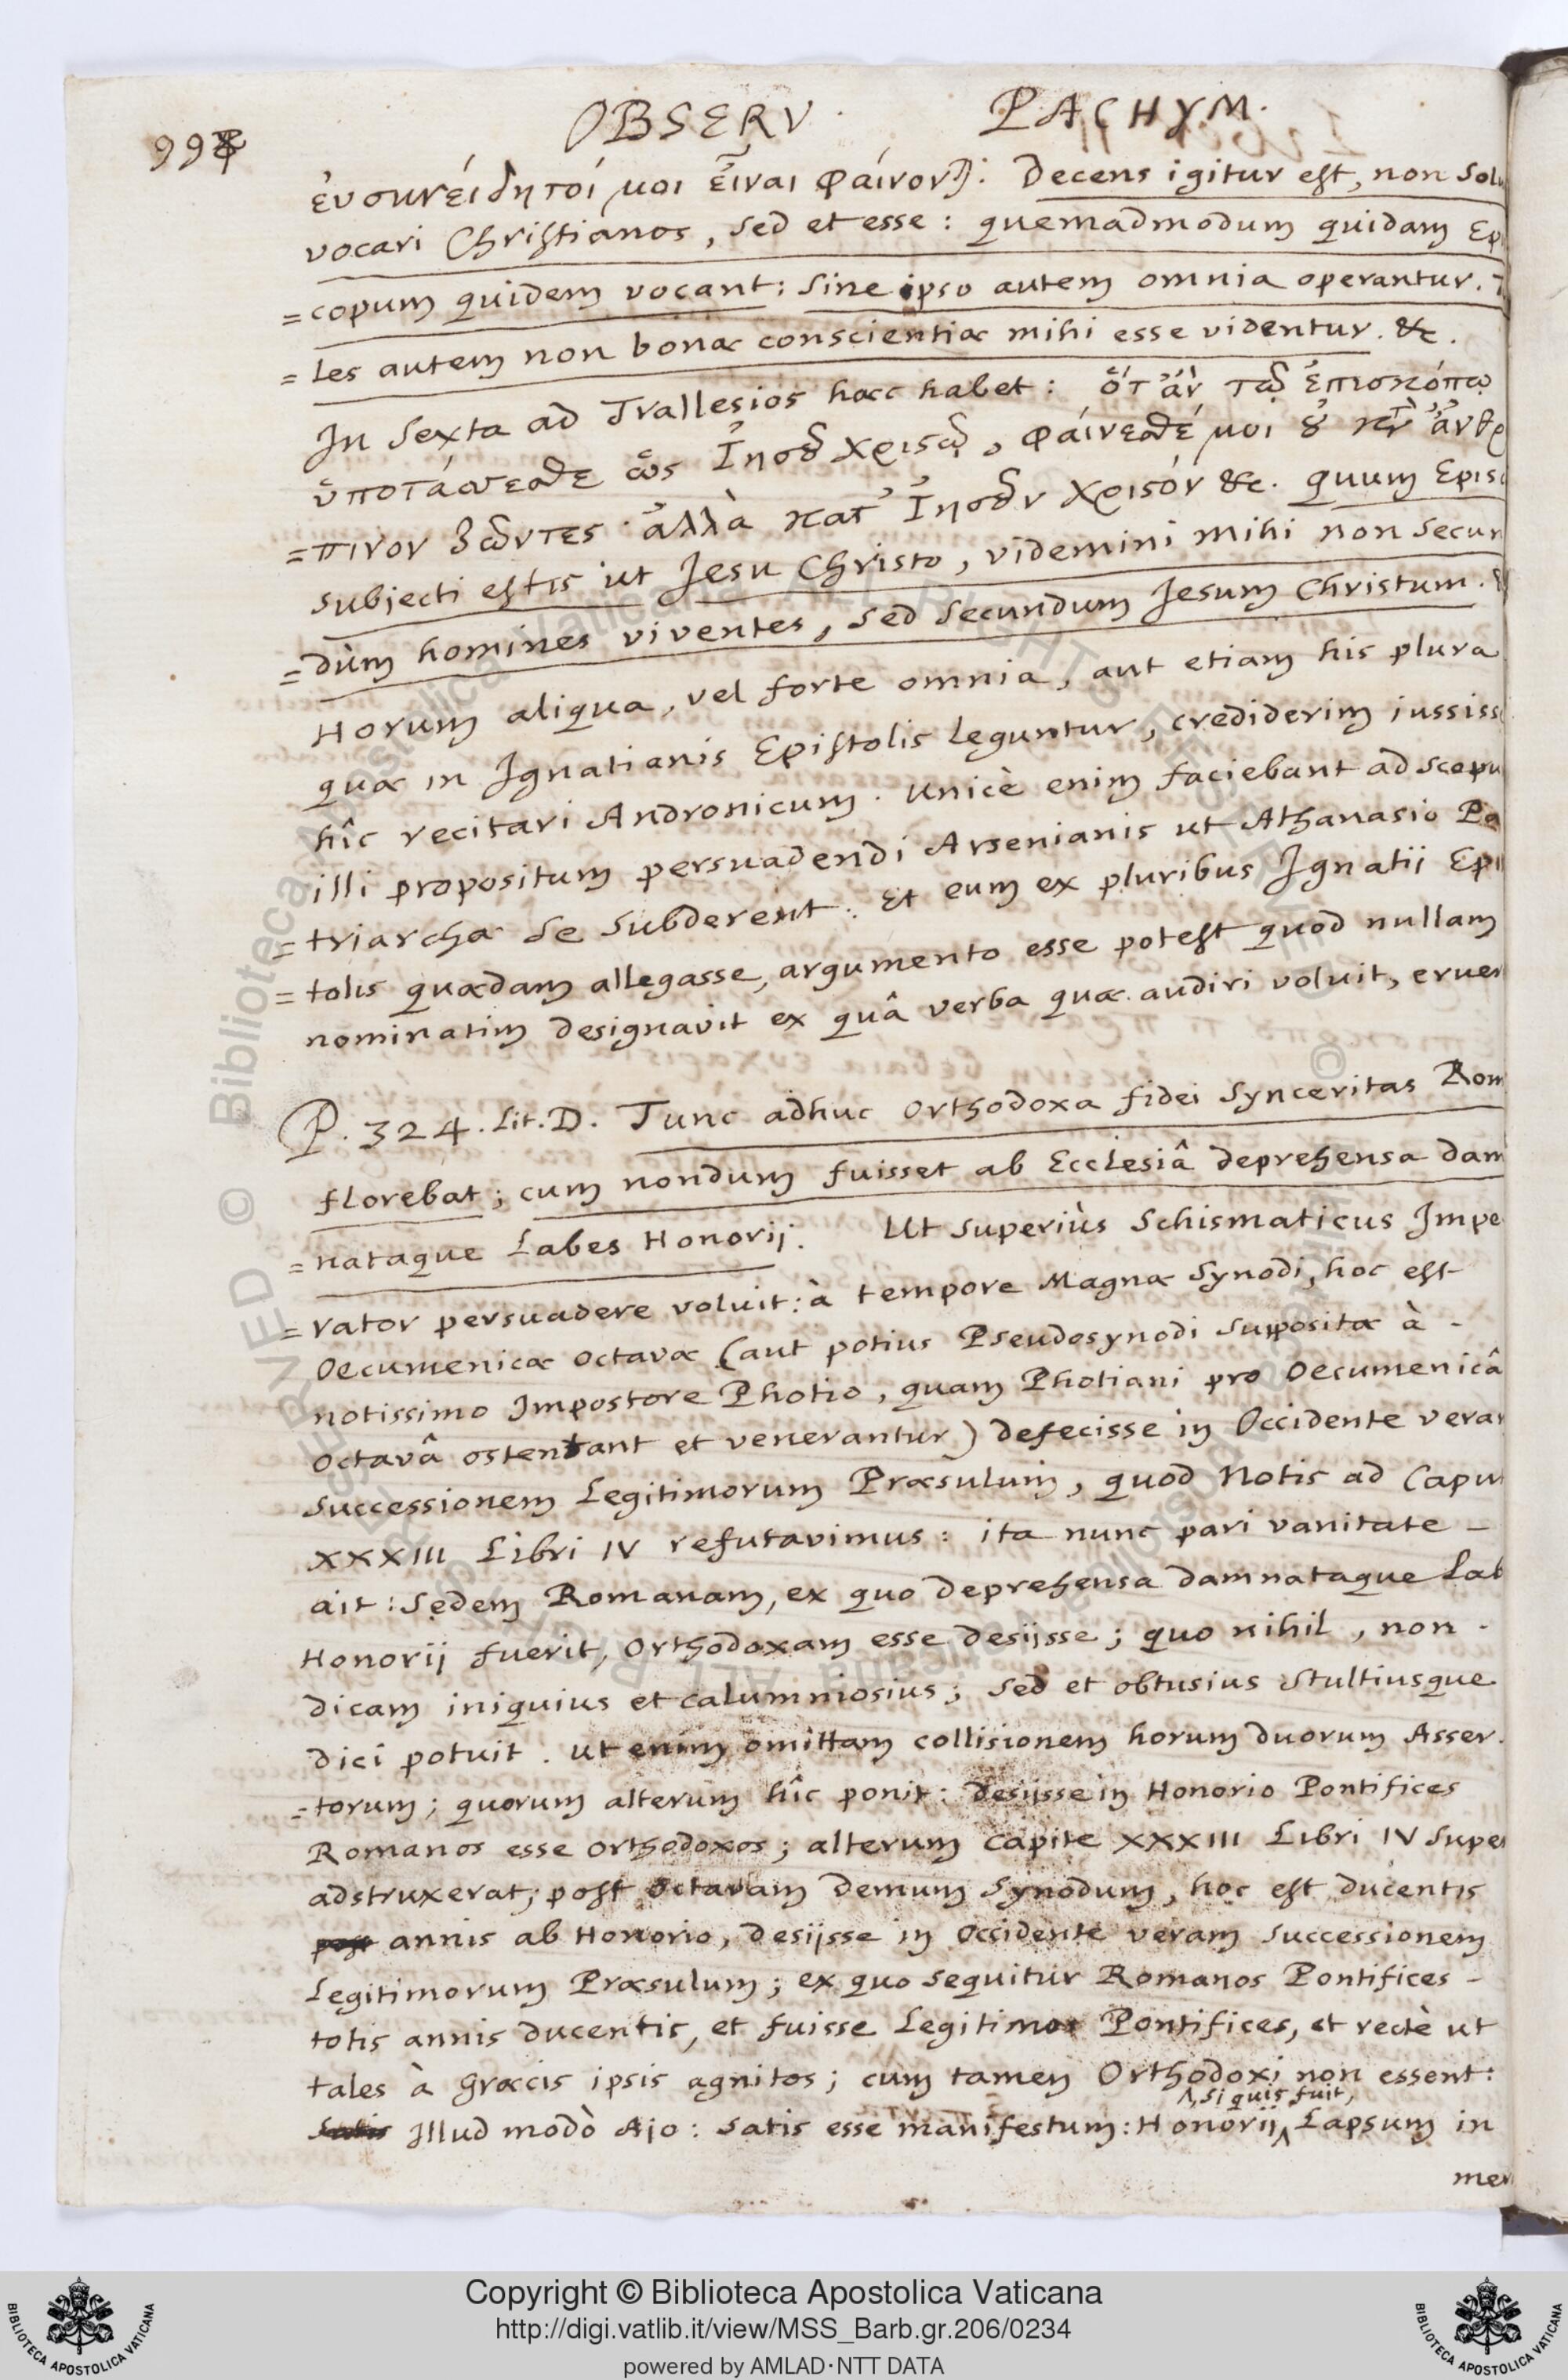 998 OBSERV. PACHYM.
ἐυσυνείδητοί μοι εἶναι φαίνονται. Decens igitur est, non Solu
vocari Christianos, sed et esse: quemadmodum quidam Epi
=copum quidem vocant: sine ipso autem omnia operantur. T
=les autem non bonæ conscientiæ mihi esse videntur. &c.
In Sexta ad Trallesios hæc habet: ὅτ' ἂν τῷ ἐπισκόπῳ
ὑποτάσσεσθε ὡς Ἰησοῦ χριστῷ, φαίνεσθέ μοι οὐ κατ' ἄνθρ
=πινον ζῶντες ἀλλὰ κατ' Ἰησοῦν χριστόν &c. quum Episc
subjecti estis ut Jesu Christo, videmini mihi non Secun
=dùm homines viventes, sed secundum Jesum Christum.
Horum aliqua, vel forte omnia, aut etiam his plura
quæ in Ignatianis Epistolis leguntur, crediderim iussiss
hîc recitari Andronicum. Unicè enim faciebant ad scopu
illi propositum persuadendi Arsenianis ut Athanasio Pa
=triarchæ se subderent. Et eum ex pluribus Ignatii Epi
=tolis quædam allegasse, argumento esse potest quod nullam
nominatim designavit ex quâ verba quæ audiri voluit, erue
P. 324. Lit. D. Tunc adhuc Orthodoxa fidei Synceritas Rom
florebat; cum nondum fuisset ab Ecclesiâ deprehensa dam
=nataque Labes Honorij. Ut superiùs Schismaticus Impe
=rator persuadere voluit: à tempore Magnæ Synodi, hoc est
Oecumenicæ octavæ (aut potius Pseudosynodi suppositæ à -
notissimo Impostore Photio, quam Photiani pro Oecumenicâ
octavâ ostentant et venerantur) defecisse in Occidente veram
successionem Legitimorum Præsulum, quod Notis ad Caput
XXXIII Libri IV refutavimus: ita nunc pari vanitate -
ait: Sedem Romanam, ex quo deprehensa damnataque Lab
Honorij fuerit, Orthodoxam esse desijsse; quo nihil, non -
dicam iniquius et calumniosius; sed et obtusius stultiusque
dici potuit. ut enim omittam collisionem horum duorum Asser.
=torum; quorum alterum hîc ponit: desijsse in Honorio Pontifices
Romanos esse orthodoxos; alterum capite XXXIII Libri IV Super
adstruxerat; post Octavam demum Synodum, hoc est ducentis
post annis ab Honorio, desijsse in Occidente veram successionem
Legitimorum Præsulum; ex quo sequitur Romanos Pontifices -
totis annis ducentis, et fuisse Legitimos Pontifices, et rectè ut
tales à græcis ipsis agnitos; cum tamen Orthodoxi non essent:
, si quis fuit,
Satis Illud modò Ajo: satis esse manifestum: Honorij Lapsum in
men
Copyright © Biblioteca Apostolica Vaticana
http://digi.vatlib.it/view/MSS_Barb.gr.206/0234
powered by AMLAD·NTT DATA
BIBLIOTECA APOSTOLICA VATICANA
BIBLIOTECA APOSTOLICA VATICANA